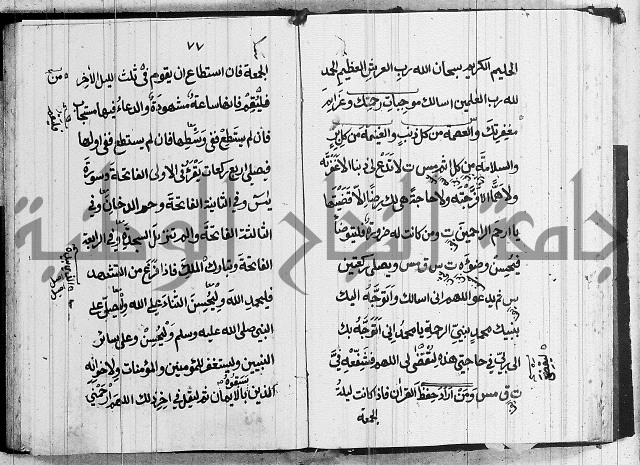 الحليم الكريم سبحان الله رب العرش العظيم الحمد
لله رب العلمين اسالك موجبات رحمتك وعزايم
مغفرتك والعصمة من كل ذنب والغنيمة من كل بر
والسلامة من كل اثم مس ت لا تدع لي ذنبا الا غفرته
ولا هما الا فرجته ولا حاجة هي لك رضا الا قضيتها
يا ارحم الراحمين ت ومن كانت له ضرورة فليتوضأ
فيحسن وضوءه ت س ق مس ويصلي ركعتين
س ثم يدعو اللهم اني اسالك واتوجه اليك
بنبيك محمد نبي الرحمة يا محمد اني اتوجه بك
الى ربي في حاجتي هذه لتقضى لي اللهم فشفعه في
ت ق مس ومن اراد حفظ القران فاذا كانت ليلة
الجمعة
٧٧
الجمعة فان استطاع ان يقوم في ثلث الليل الاخر
فليقم فانها ساعة مشهودة والدعاء فيها مستجاب
فان لم يستطع ففي وسطها فان لم يستطع ففي اولها
فصلى اربع ركعات يقرا في الاولى الفاتحة وسورة
يس وفي الثانية الفاتحة وحم الدخان وفي
الثالثة الفاتحة والم تنزيل السجدة وفي الرابعة
الفاتحة وتبارك الملك فاذا فرغ من التشهد
فليحمد الله وليحسن الثناء على الله وليصل على
النبي صلى الله عليه وسلم وليحسن وعلى سائر
النبيين وليستغفر للمؤمنين والمؤمنات ولاخوانه
الذين سبقوه بالايمان ثم ليقل في اخر ذلك اللهم ارحمني
جامعة النجاح الوطنية